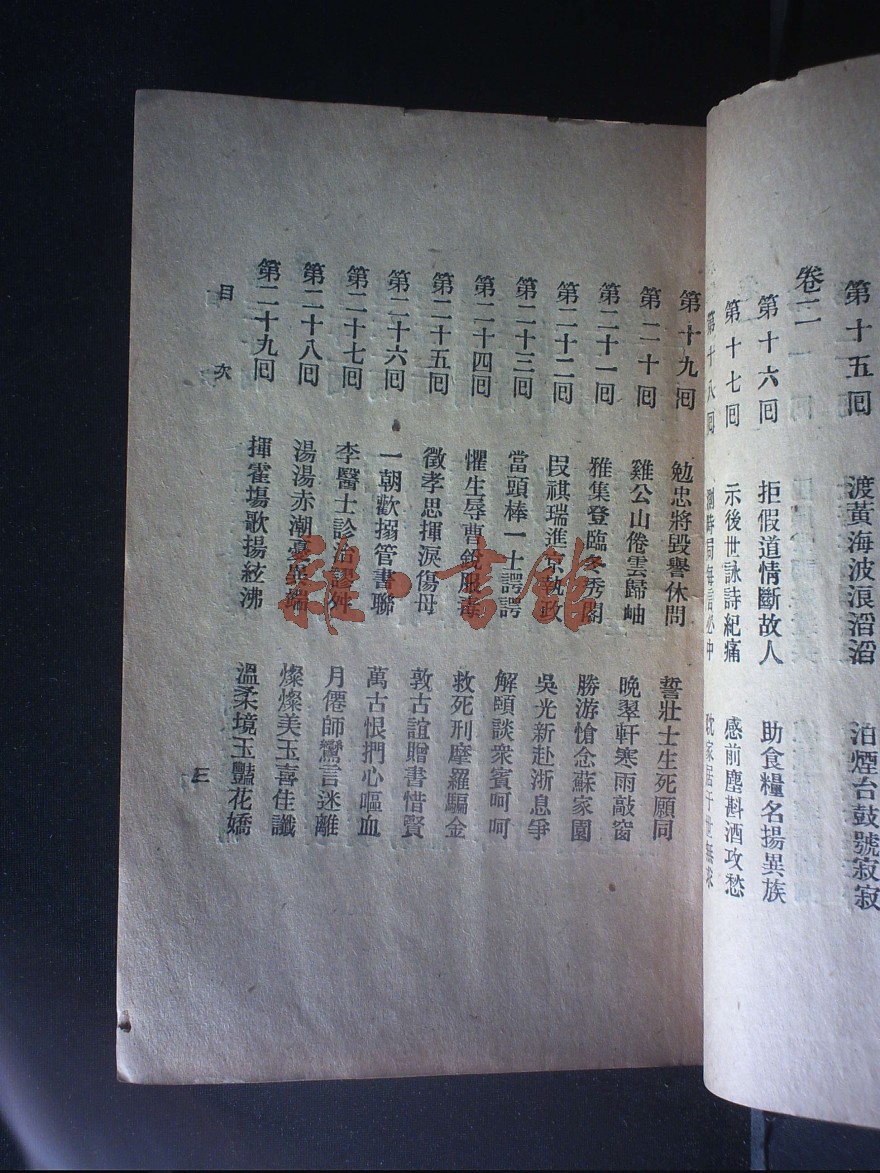 第十五回 渡黃海波浪滔滔 泊煙台鼓號寂寂
卷二
第十六回 拒假道情斷故人 助食糧名揚異族
第十七回 示後世詠詩紀痛 感前塵斟酒攻愁
第十八回 時局每言必中 家居于世無求
第十九回 勉忠將毀譽休問 誓壯士生死願同
第二十回 雞公山倦雲歸岫 晚翠軒寒雨敲窗
第二十一回 雅集登臨冬秀閣 勝游愴念蘇家園
第二十二回 段祺瑞進京執政 吳光新赴浙息爭
第二十三回 當頭棒一士諤諤 解頤談衆賓呵呵
第二十四回 懼生辱曹銳服毒 救死刑摩羅騙金
第二十五回 徵孝思揮淚傷母 敦古誼贈書惜賢
第二十六回 一朝歡搦管書聯 萬古恨捫心嘔血
第二十七回 李醫士診治謬舛 月僊師鸞言迷離
第二十八回 湯湯赤潮憂異端 燦燦美玉喜佳讖
第二十九回 揮霍塲歌揚絃沸 溫柔境玉豔花嬌
目次
三
雜·書館